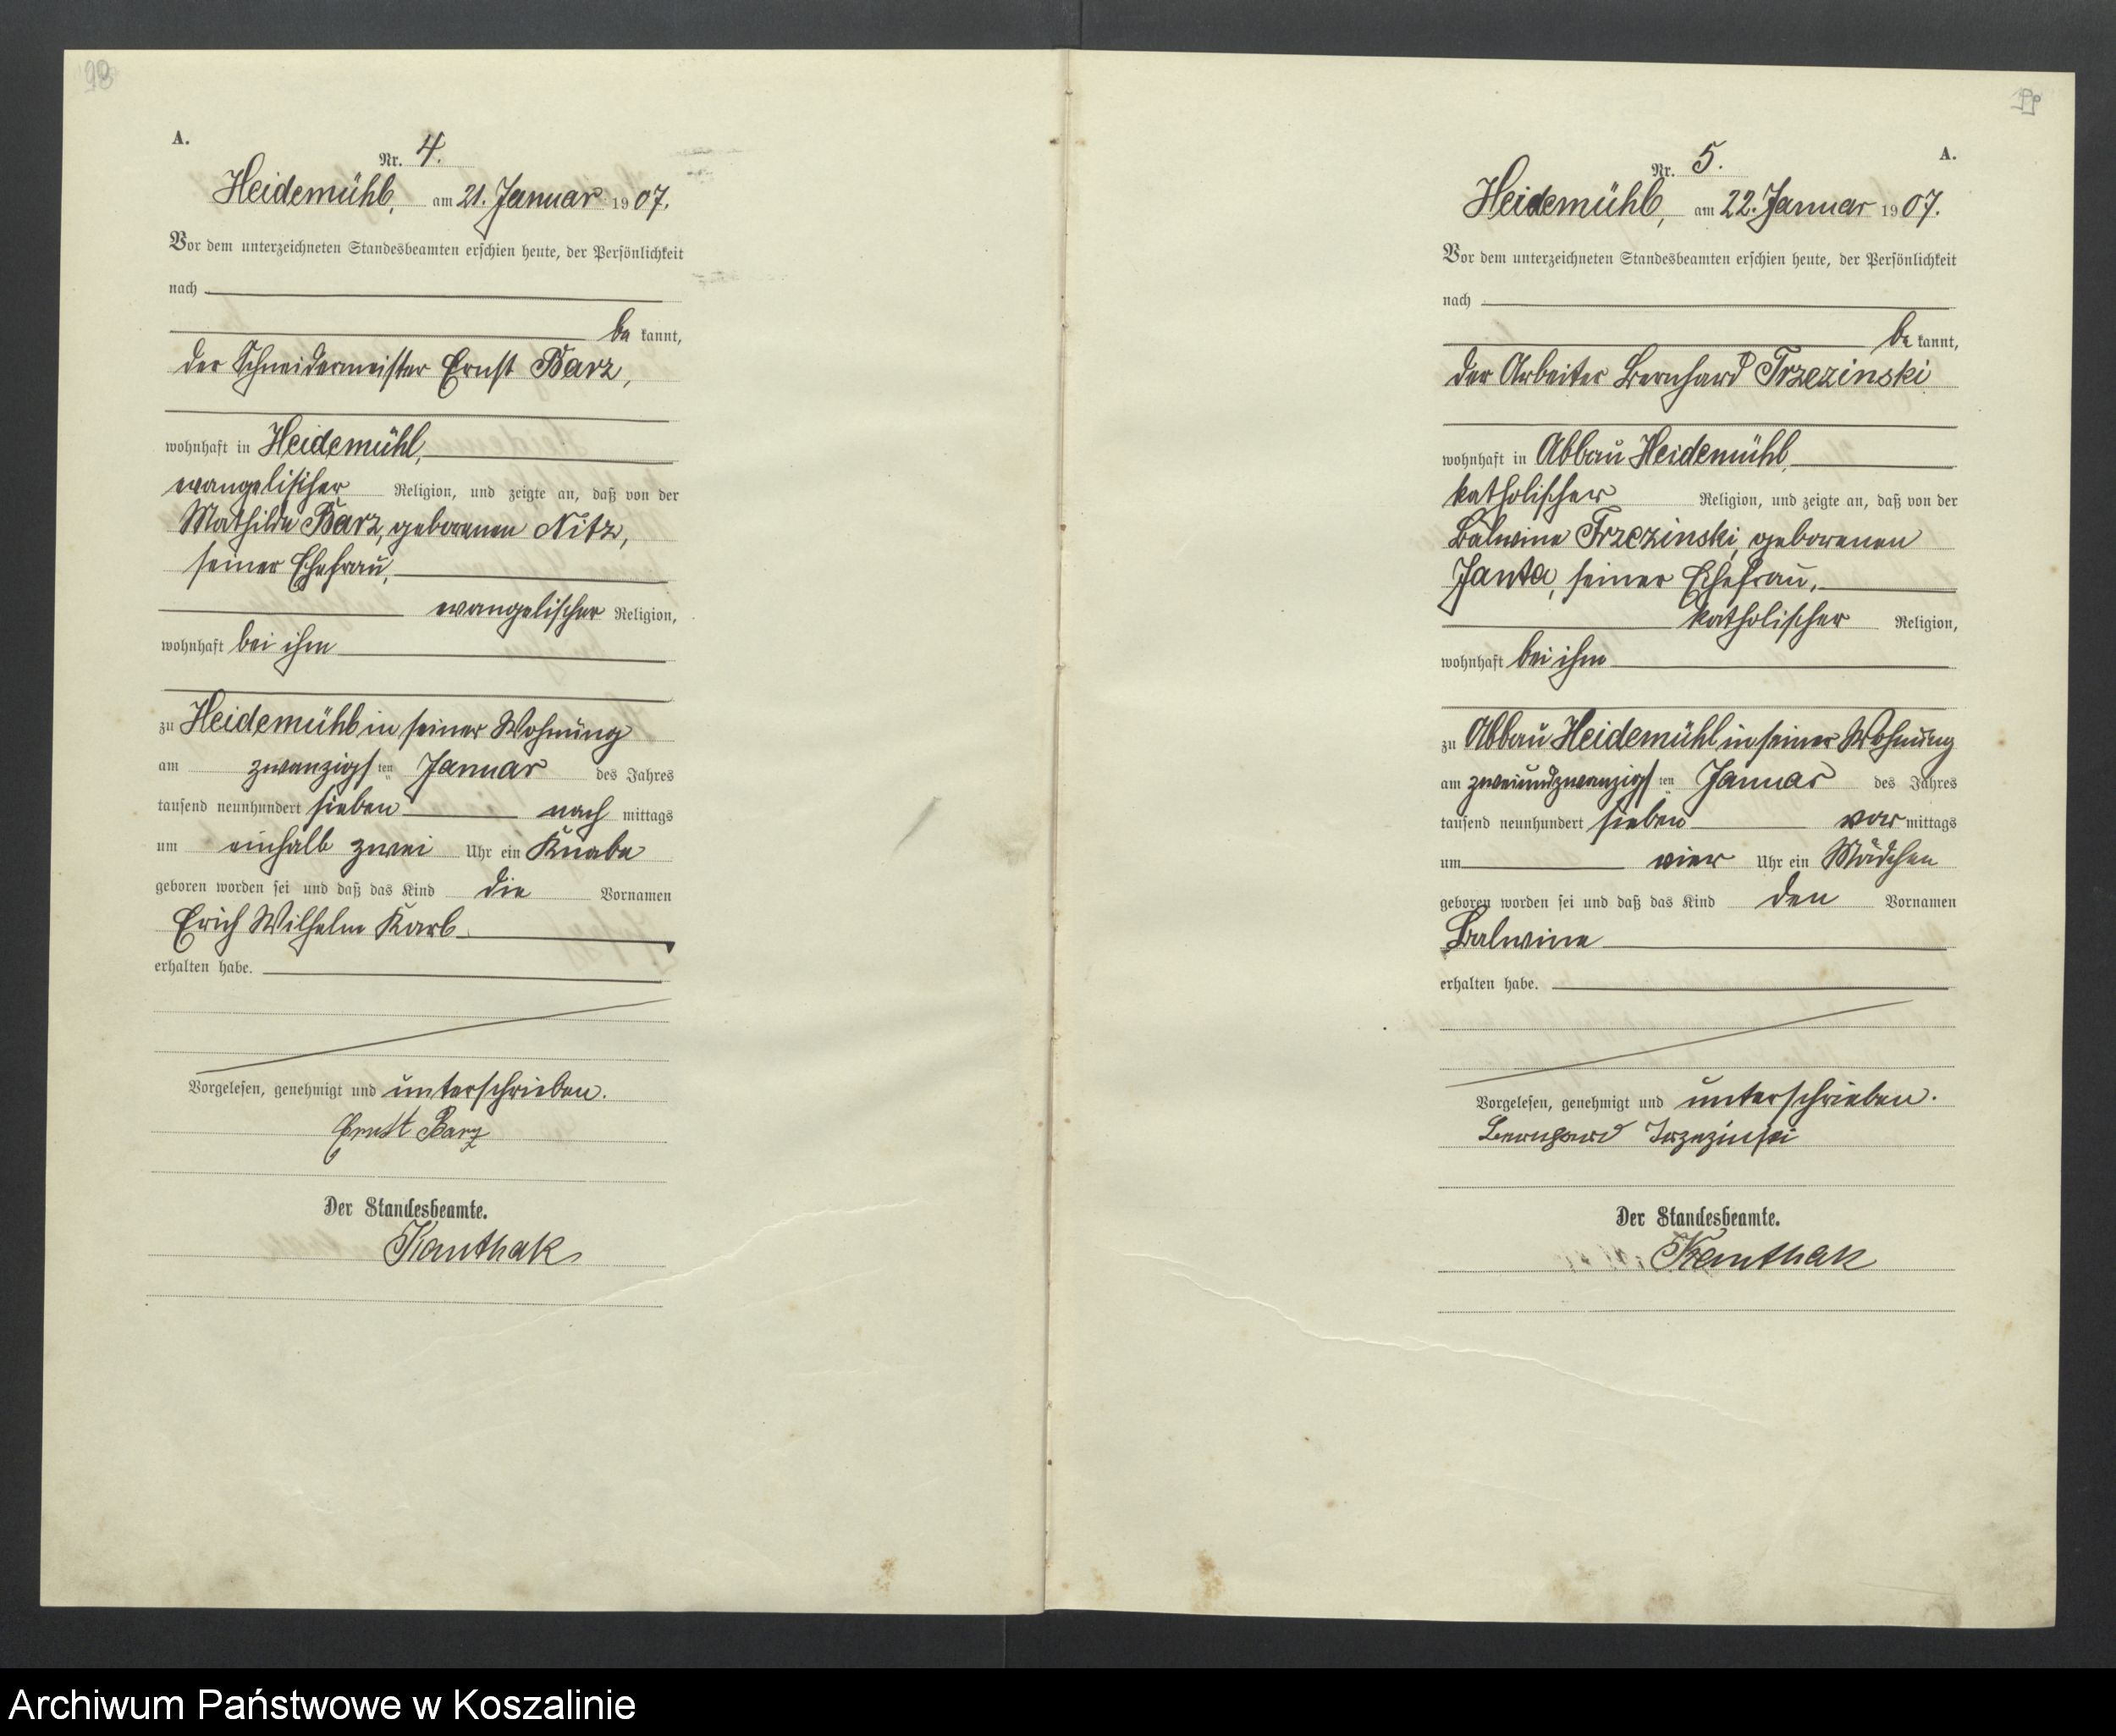 98
A.
Nr. 4.
Heidemühl, am 21. Januar 1907.
Vor dem unterzeichneten Standesbeamten erschien heute, der Persönlichkeit
nach
be kannt,
der Schneidermeister Ernst Barz,
wohnhaft in Heidemühl,
evangelischer Religion, und zeigte an, daß von der
Mathilde Barz, geborenen Nitz,
seiner Ehefrau,
evangelischer Religion,
wohnhaft bei ihm
zu Heidemühl in seiner Wohnung
am zwanzigsten Januar des Jahres
tausend neunhundert sieben nach mittags
um einhalb zwei Uhr ein Knabe
geboren worden sei und daß das Kind die Vornamen
Erich Wilhelm Karl
erhalten habe.
Vorgelesen, genehmigt und unterschrieben.
Ernst Barz
Der Standesbeamte.
Kanthak
A.
Nr. 5.
Heidemühl, am 22. Januar 1907.
Vor dem unterzeichneten Standesbeamten erschien heute, der Persönlichkeit
nach
be kannt,
der Arbeiter Bernhard Trzezinski
wohnhaft in Abbau Heidemühl,
katholischer Religion, und zeigte an, daß von der
Balwine Trzezinski, geborenen
Janta, seiner Ehefrau,
katholischer Religion,
wohnhaft bei ihm
zu Abbau Heidemühl in seiner Wohnung
am zweiundzwanzigsten Januar des Jahres
tausend neunhundert sieben vor mittags
um vier Uhr ein Mädchen
geboren worden sei und daß das Kind den Vornamen
Balwine
erhalten habe.
Vorgelesen, genehmigt und unterschrieben.
Bernhard Trzezinski
Der Standesbeamte.
Kanthak
Archiwum Państwowe w Koszalinie